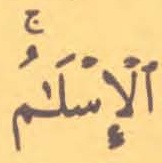 ٱلۡإِسۡلَٰمُۗ